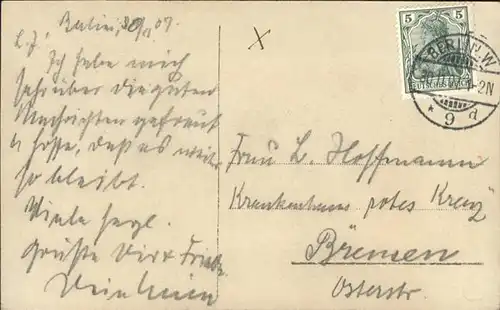 Berlin, 30/11 07.
L. F.
Ich habe mich
sehr über die guten
Nachrichten gefreut
u hoffe, daß es weiter
so bleibt.
Viele herzl.
Grüße Dir
Dein
X
5 5
DEUTSCHES REICH
BERLIN. W
30.11.07.
1-2N
* 9 d
Frau L. Hoffmann
Krankenhaus rotes Kreuz
Bremen
Osterstr.